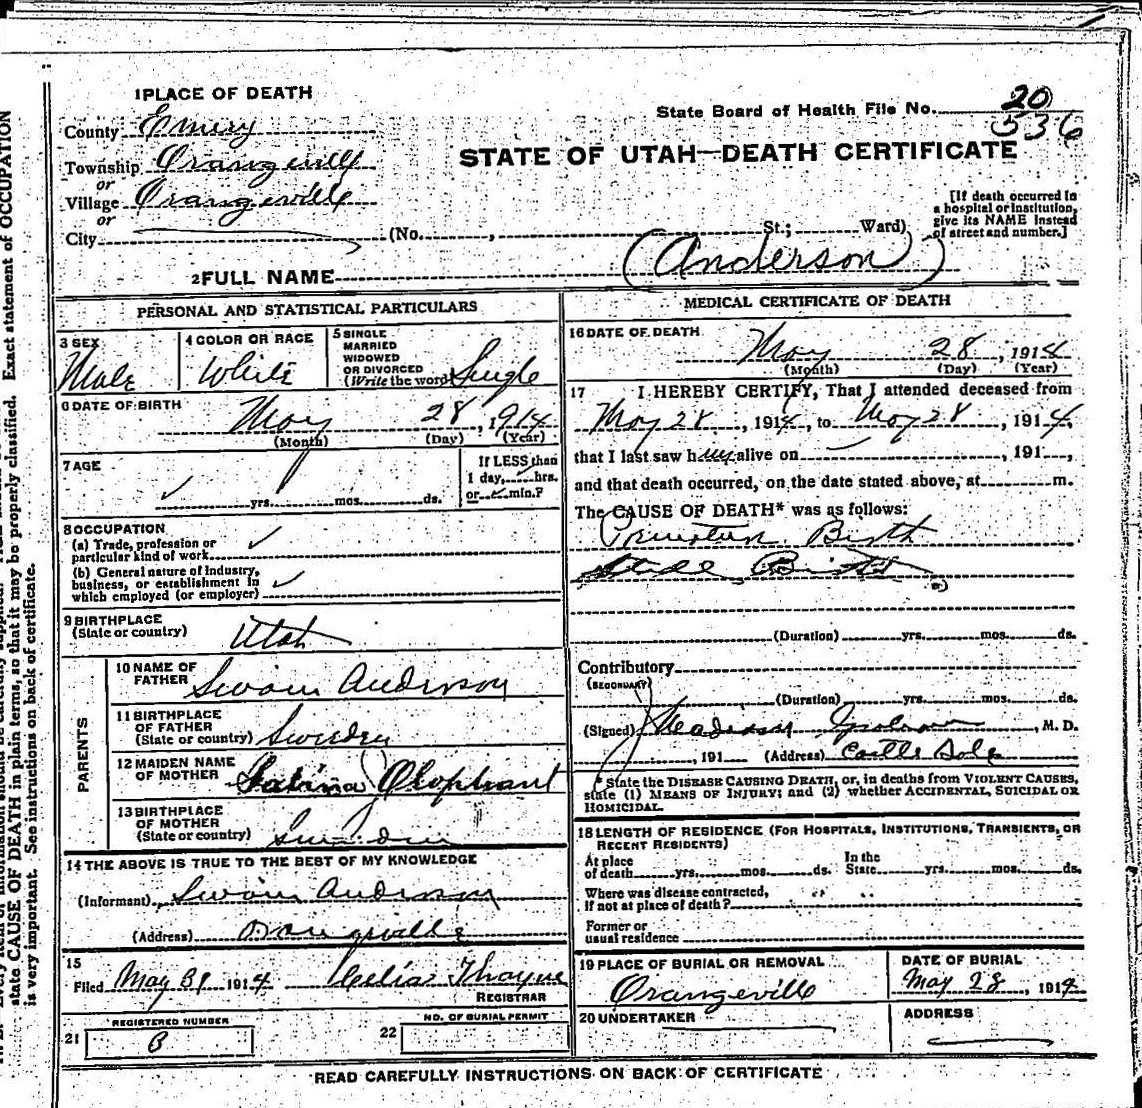 1 PLACE OF DEATH
County Emery
Township Orangeville
or
Village Orangeville
or
City (No. , St.; Ward)
State Board of Health File No. 20
536
STATE OF UTAH—DEATH CERTIFICATE
[If death occurred in
a hospital or institution,
give its NAME instead
of street and number.]
2 FULL NAME (Anderson)
PERSONAL AND STATISTICAL PARTICULARS
3 SEX
Male
4 COLOR OR RACE
White
5 SINGLE
MARRIED
WIDOWED
OR DIVORCED
(Write the word) Single
6 DATE OF BIRTH
May 28, 1914
(Month) (Day) (Year)
7 AGE
yrs. mos. ds.
If LESS than
1 day, hrs.
or min.?
8 OCCUPATION
(a) Trade, profession or
particular kind of work
(b) General nature of industry,
business, or establishment in
which employed (or employer)
9 BIRTHPLACE
(State or country) Utah
PARENTS
10 NAME OF
FATHER Swain Anderson
11 BIRTHPLACE
OF FATHER
(State or country) Sweden
12 MAIDEN NAME
OF MOTHER Olophant
13 BIRTHPLACE
OF MOTHER
(State or country) Sweden
14 THE ABOVE IS TRUE TO THE BEST OF MY KNOWLEDGE
(Informant) Swain Anderson
(Address) Orangeville
15
Filed May 31 1914 Celia Thayne
REGISTRAR
REGISTERED NUMBER
21 8
NO. OF BURIAL PERMIT
22
MEDICAL CERTIFICATE OF DEATH
16 DATE OF DEATH
May 28, 1914
(Month) (Day) (Year)
17 I HEREBY CERTIFY, That I attended deceased from
May 28, 1914, to May 28, 1914,
that I last saw him alive on , 191 ,
and that death occurred, on the date stated above, at m.
The CAUSE OF DEATH* was as follows:
Birth
Still Birth
(Duration) yrs. mos. ds.
Contributory
(SECONDARY)
(Duration) yrs. mos. ds.
(Signed) , M. D.
, 191 (Address) Castle Dale
* State the DISEASE CAUSING DEATH, or, in deaths from VIOLENT CAUSES,
state (1) MEANS OF INJURY; and (2) whether ACCIDENTAL, SUICIDAL OR
HOMICIDAL.
18 LENGTH OF RESIDENCE (FOR HOSPITALS, INSTITUTIONS, TRANSIENTS, OR
RECENT RESIDENTS)
At place
of death yrs. mos. ds.
In the
State yrs. mos. ds.
Where was disease contracted,
if not at place of death?
Former or
usual residence
19 PLACE OF BURIAL OR REMOVAL
Orangeville
DATE OF BURIAL
May 28, 1914
20 UNDERTAKER
ADDRESS
READ CAREFULLY INSTRUCTIONS ON BACK OF CERTIFICATE
state CAUSE OF DEATH in plain terms, so that it may be properly classified. Exact statement of OCCUPATION
is very important. See instructions on back of certificate.